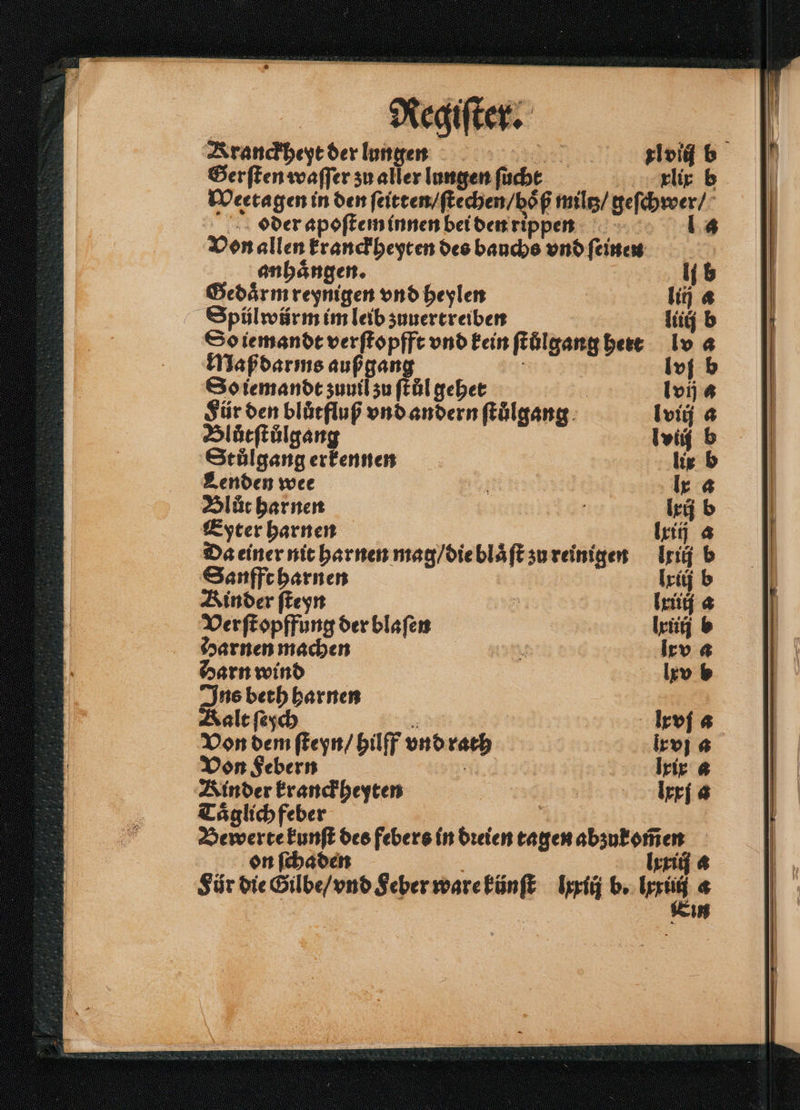 Regiſter.
Kranckheyt der lungen xlviij b
Gerſten waſſer zu aller lungen ſucht xlix b
Weetagen in den ſeitten/ſtechen/boͤß miltz/ geſchwer/
oder apoſtem innen bei den rippen l a
Von allen kranckheyten des bauchs vnd ſeinen
anhaͤngen. lj b
Gedaͤrm reynigen vnd heylen liij a
Spülwürm im leib zuuertreiben liiij b
So iemandt verſtopfft vnd kein ſtůlgang hett lv a
Maßdarms außgang lvj b
So iemandt zuuil zu ſtůl gehet lvij a
Für den blůtfluß vnd andern ſtůlgang lviij a
Blůtſtůlgang lviij b
Stůlgang erkennen lix b
Lenden wee lx a
Blůt harnen lxij b
Eyter harnen lxiij a
Da einer nit harnen mag/die blaͤſt zu reinigen lxiij b
Sanfft harnen lxiij b
Kinder ſteyn lxiiij a
Verſtopffung der blaſen lxiiij b
Harnen machen lxv a
Harn wind lxv b
Ins beth harnen
Kalt ſeych lxvj a
Von dem ſteyn/ hilff vnd rath lxvj a
Von Febern lxix a
Kinder kranckheyten lxxj a
Taͤglich feber
Bewerte kunſt des febers in dꝛeien tagen abzukom̃en
on ſchaden lxxiij a
Für die Gilbe/vnd Feber ware künſt lxxiij b. lxxiiij a
Ein